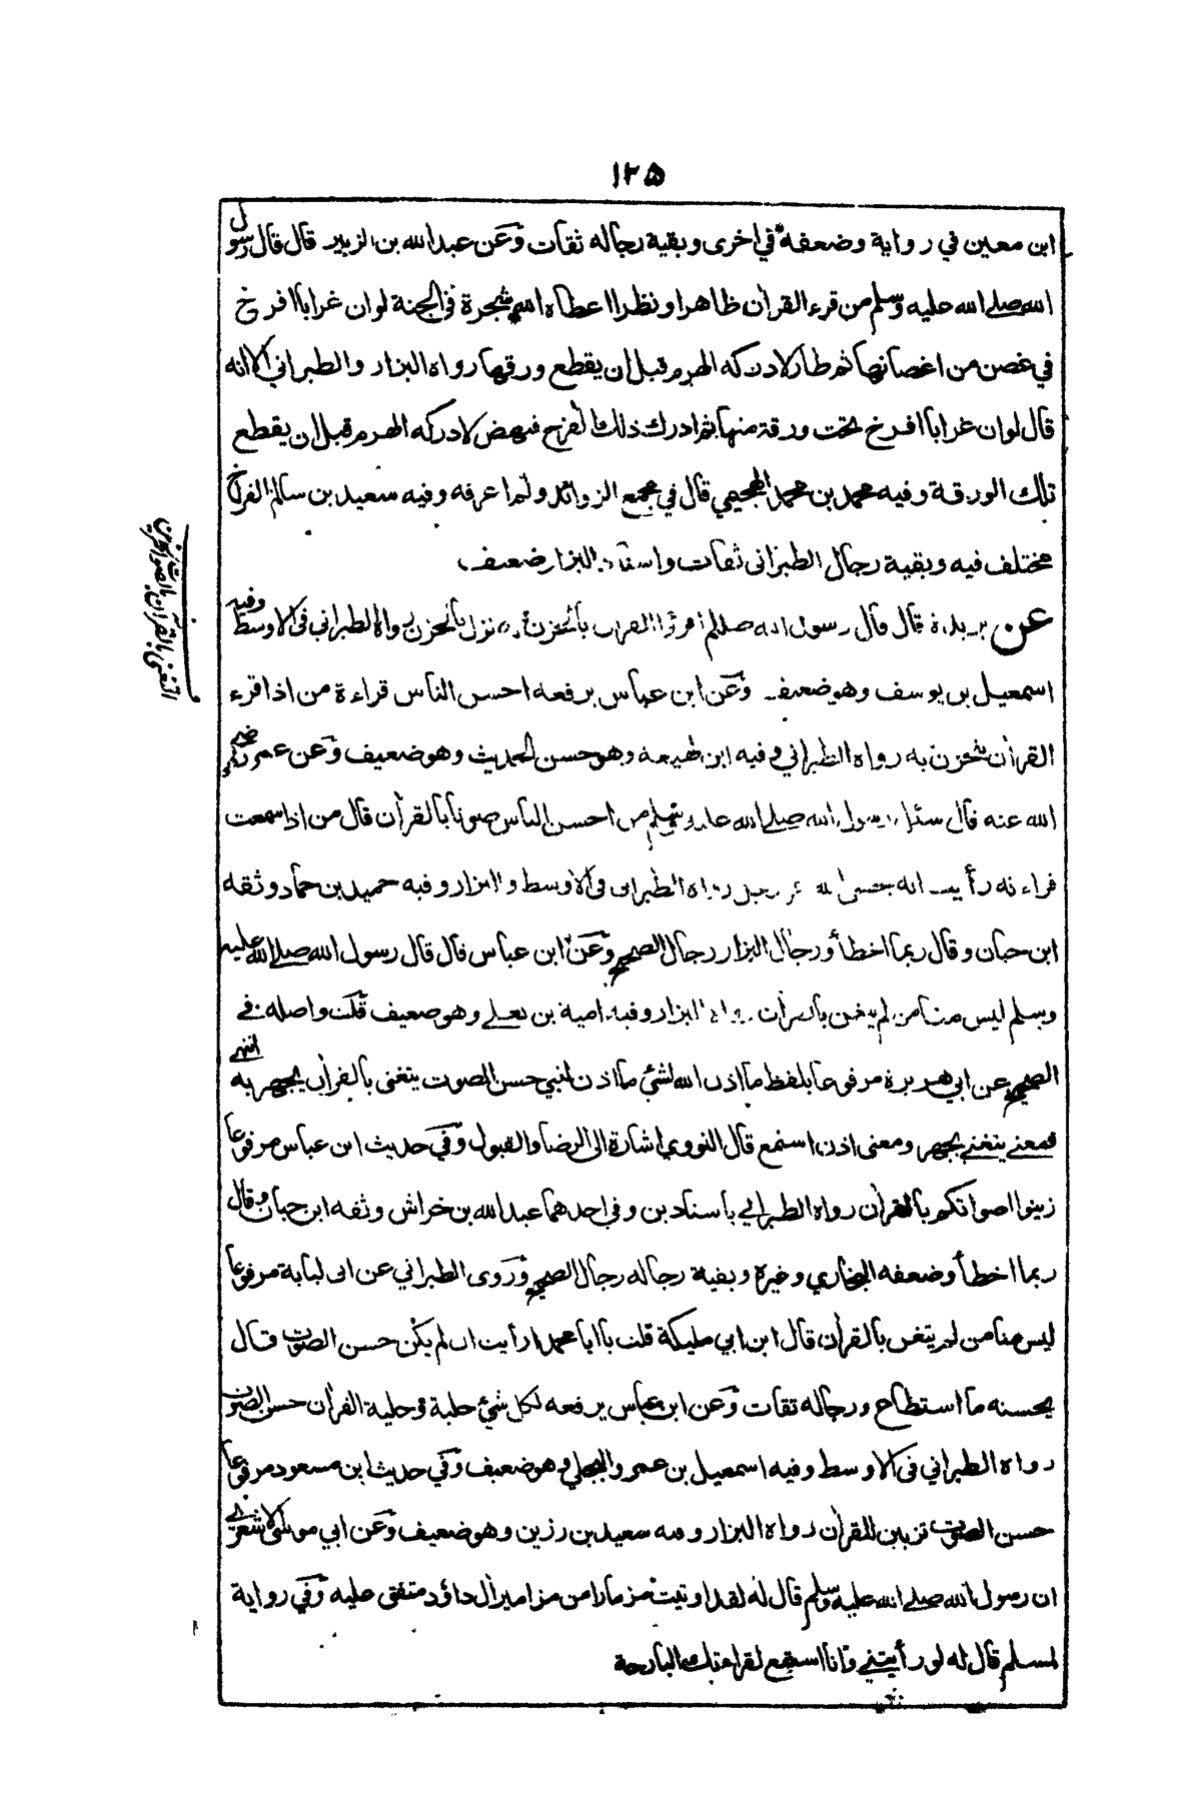 ١٢٥
ابن معين في رواية وضعفه في اخرى وبقية رجاله ثقات وعن عبد الله بن الزبير قال قال رسول
الله صلے الله عليه وسلم من قرء القرآن ظاهرا او نظرا اعطاه الله شجرة في الجنة لو ان غرابا افرخ
في غصن من اغصانها ثم طار لادركه الهرم قبل ان يقطع ورقها رواه البزار والطبراني الا انه
قال لو ان غرابا افرخ تحت ورقة منها ثم ادرك ذلك الفرخ فنهض لادركه الهرم قبل ان يقطع
تلك الورقة وفيه محمد بن محمد الهجيمي قال في مجمع الزوائد ولم اعرفه وفيه سعيد بن سالم القداح
مختلف فيه وبقية رجال الطبراني ثقات واسناد البزار ضعيف
عن بريدة قال قال رسول الله صللم اقرؤا القرآن بالحزن فانه نزل بالحزن رواه الطبراني فى الاوسط وفيه
اسمعيل بن يوسف وهو ضعيف وعن ابن عباس يرفعه احسن الناس قراءة من اذا قرء
القرآن يتحزن به رواه الطبراني وفيه ابن لهيعة وهو حسن الحديث وهو ضعيف وعن عمر رضي
الله عنه قال سئل رسول الله صلے الله عليه وسلم من احسن الناس صوتا بالقرآن قال من اذا سمعت
قراءته رأيت انه يخشى الله عز وجل رواه الطبرانى فى الاوسط والبزار وفيه حميد بن حماد وثقه
ابن حبان وقال ربما اخطأ ورجال البزار رجال الصحيح وعن ابن عباس قال قال رسول الله صلے الله عليه
وسلم ليس منا من لم يتغن بالقرآن رواه البزار وفيه امية بن يعلے وهو ضعيف قلت واصله في
الصحيح عن ابي هريرة مرفوعا بلفظ ما اذن الله لشئ ما اذن لنبي حسن الصوت يتغنى بالقرآن يجهر به انتهے
فمعنے يتغنے يجهر ومعنى اذن استمع قال النووي اشارة الى الرضا والقبول وفي حديث ابن عباس مرفوعا
زينوا اصواتكم بالقرآن رواه الطبراني باسنادين وفي احدهما عبد الله بن خراش وثقه ابن حبان وقال
ربما اخطأ وضعفه البخاري وغيره وبقية رجاله رجال الصحيح وروى الطبراني عن ابى لبابة مرفوعا
ليس منا من لم يتغن بالقرآن قال ابن ابي مليكة قلت يا ابا محمد ارأيت ان لم يكن حسن الصوت قال
يحسنه ما استطاع ورجاله ثقات وعن ابن عباس يرفعه لكل شئ حلية وحلية القرآن حسن الصوت
رواه الطبراني فى الاوسط وفيه اسمعيل بن عمرو البجلي وهو ضعيف وفي حديث ابن مسعود مرفوعا
حسن الصوت تزيين للقرآن رواه البزار وفيه سعيد بن رزين وهو ضعيف وعن ابي موسى الاشعري
ان رسول الله صلے الله عليه وسلم قال له لقد اوتيت مزمارا من مزامير آل داؤد متفق عليه وفي رواية
لمسلم قال له لو رأيتني وانا استمع لقراءتك البارحة
التغني بالقرآن بالصوت الحزين